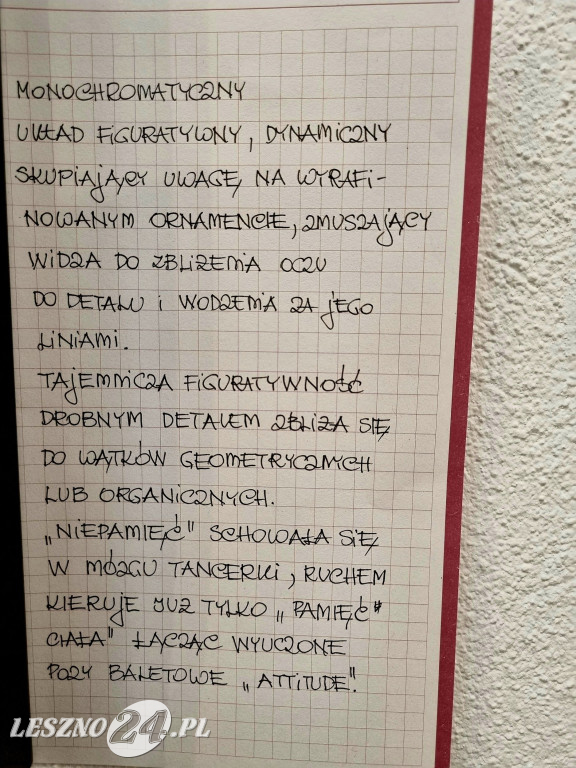 MONOCHROMATYCZNY
UKŁAD FIGURATYWNY, DYNAMICZNY
SKUPIAJĄCY UWAGĘ NA WYRAFI-
NOWANYM ORNAMENCIE, ZMUSZAJĄCY
WIDZA DO ZBLIŻENIA OCZU
DO DETALU I WODZENIA ZA JEGO
LINIAMI.
TAJEMNICZA FIGURATYWNOŚĆ
DROBNYM DETALEM ZBLIŻA SIĘ
DO WĄTKÓW GEOMETRYCZNYCH
LUB ORGANICZNYCH.
„NIEPAMIĘĆ" SCHOWAŁA SIĘ
W MÓZGU TANCERKI, RUCHEM
KIERUJE JUŻ TYLKO „PAMIĘĆ"
CIAŁA" ŁĄCZĄC WYUCZONE
POZY BALETOWE „ATTITUDE".
LESZNO24.PL